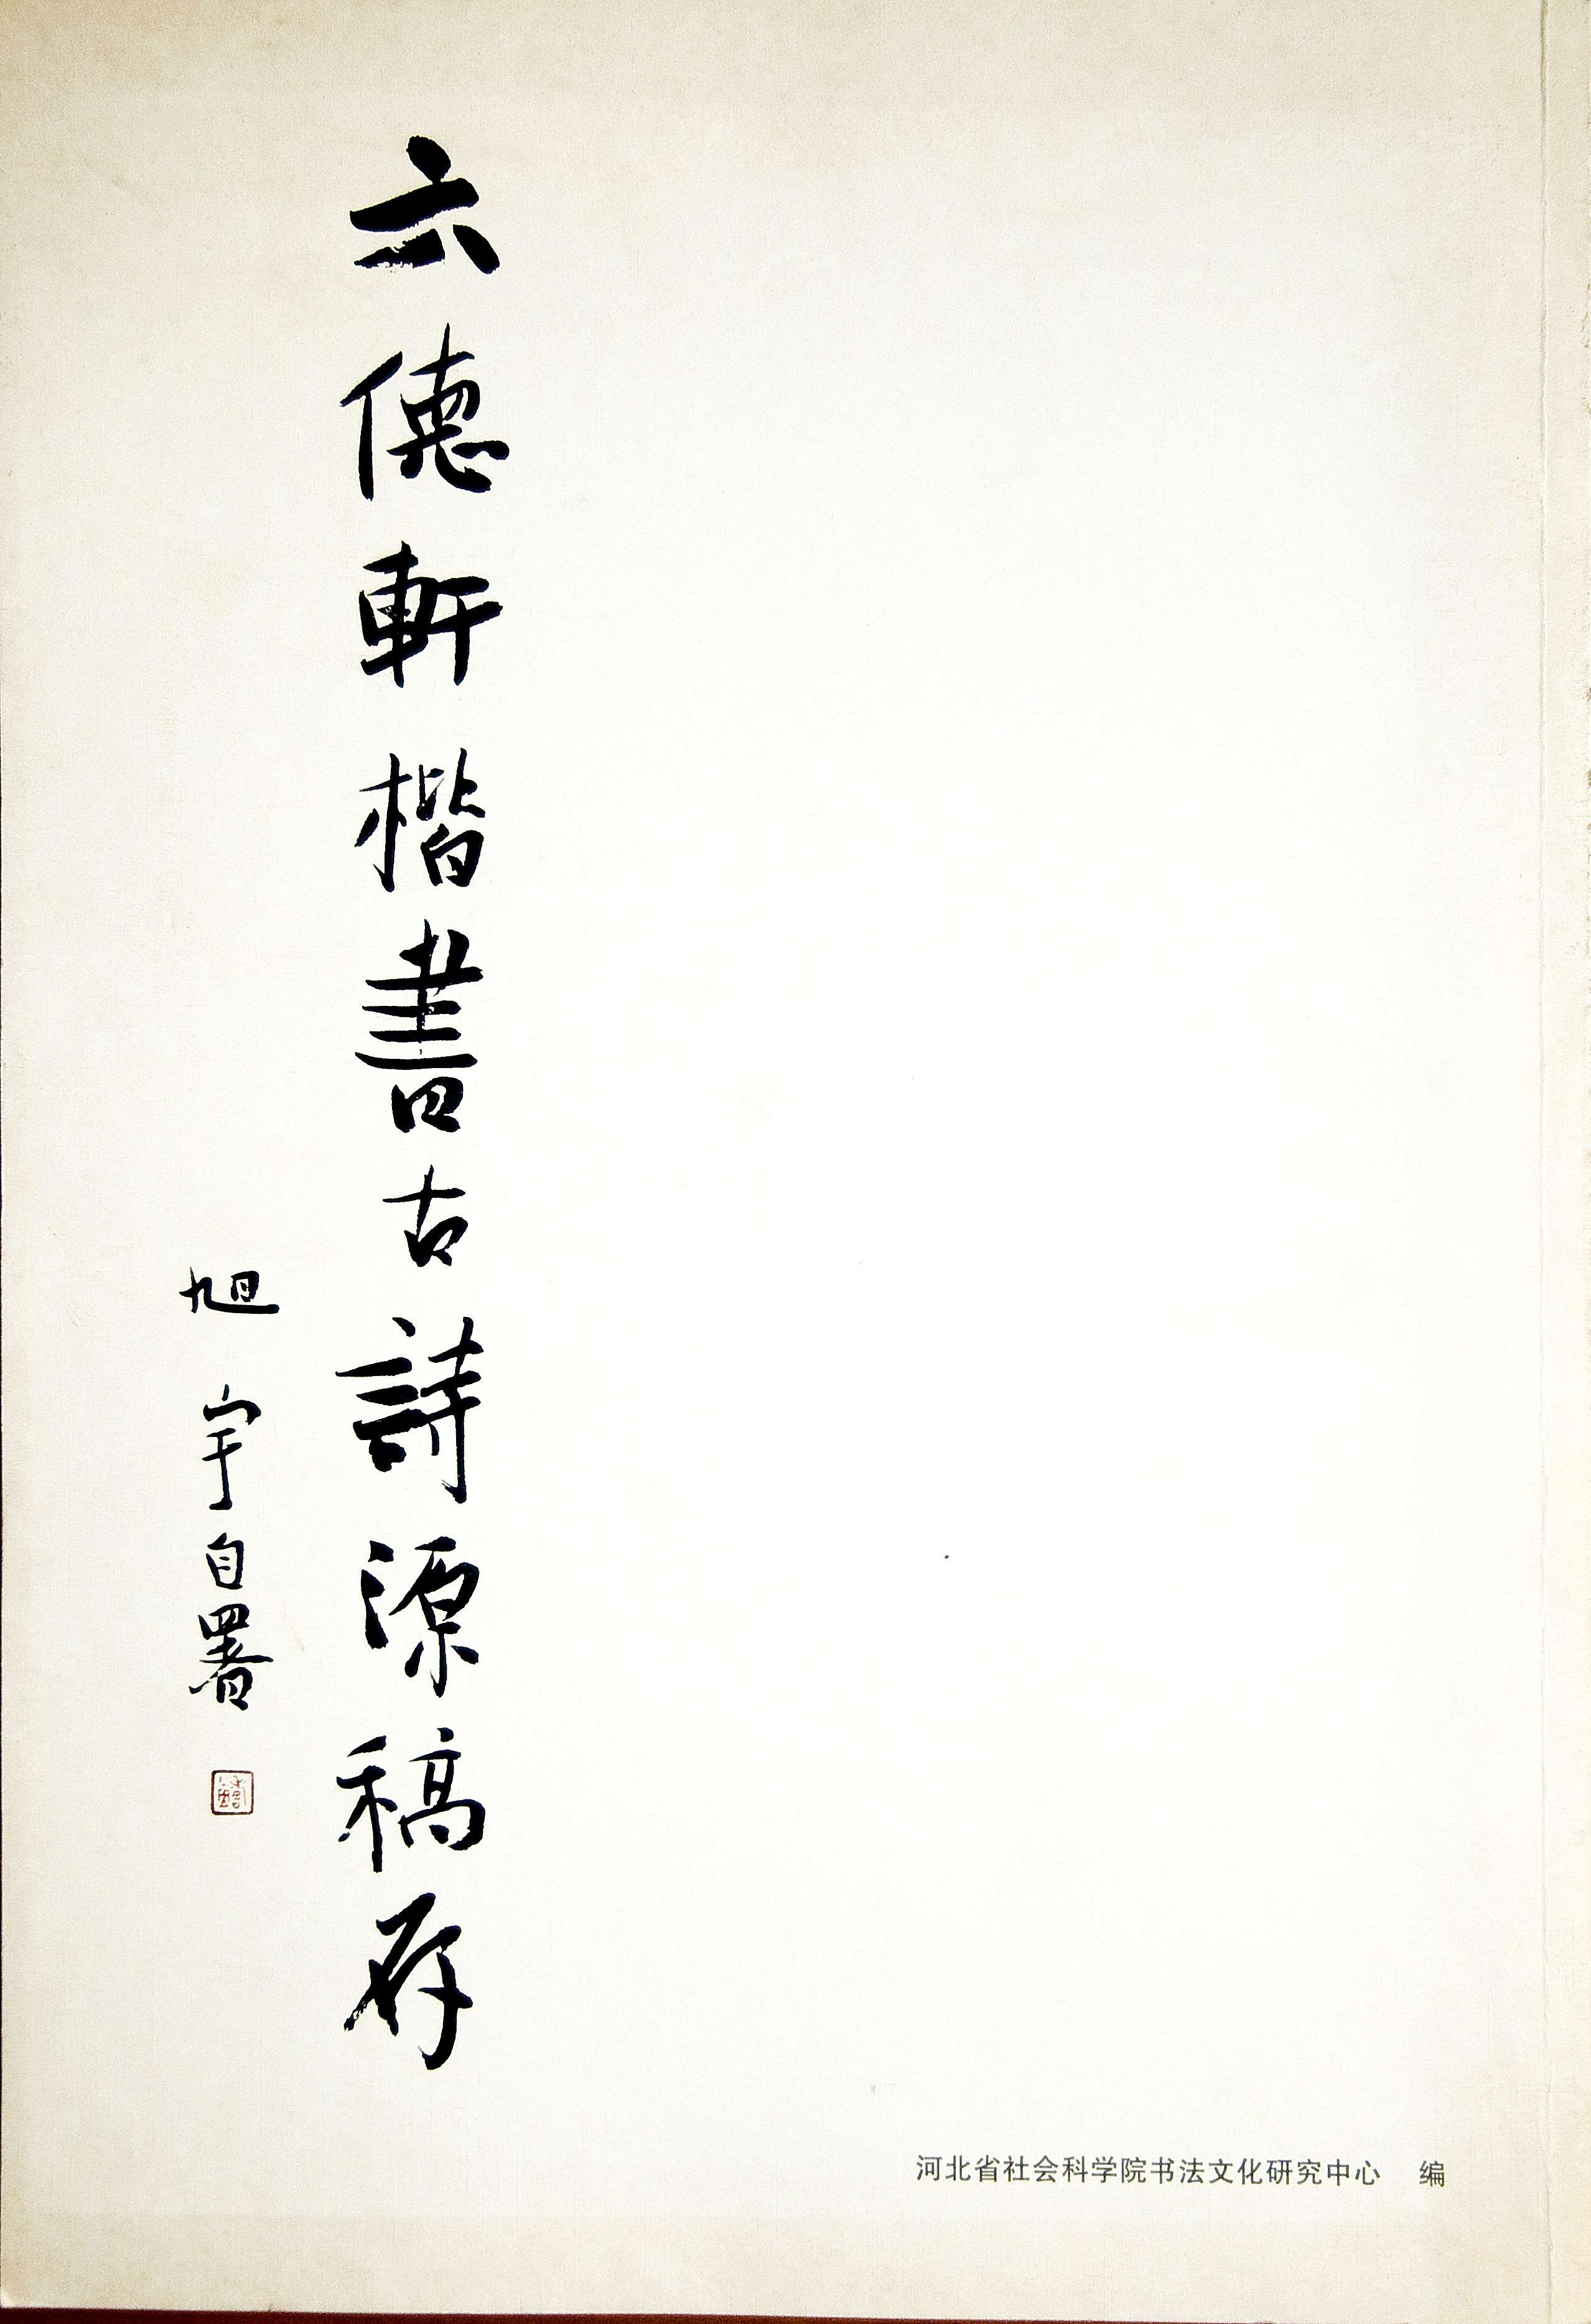 六德軒楷書古詩源稿存
旭宇自署
河北省社会科学院书法文化研究中心 编